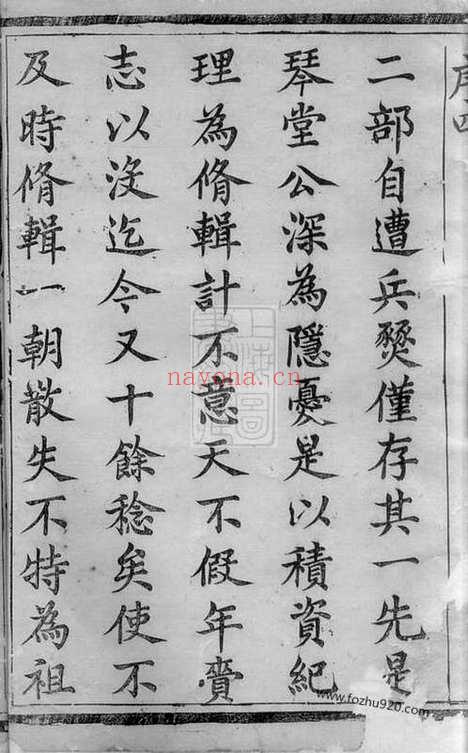 二部自遭兵燹僅存其一先是
琴堂公深為隱憂是以積資紀
理為脩輯計不意天不假年賫
志以沒迄今又十餘稔矣使不
及時脩輯一朝散失不特為祖
nayona.cn
www.fozhu920.com